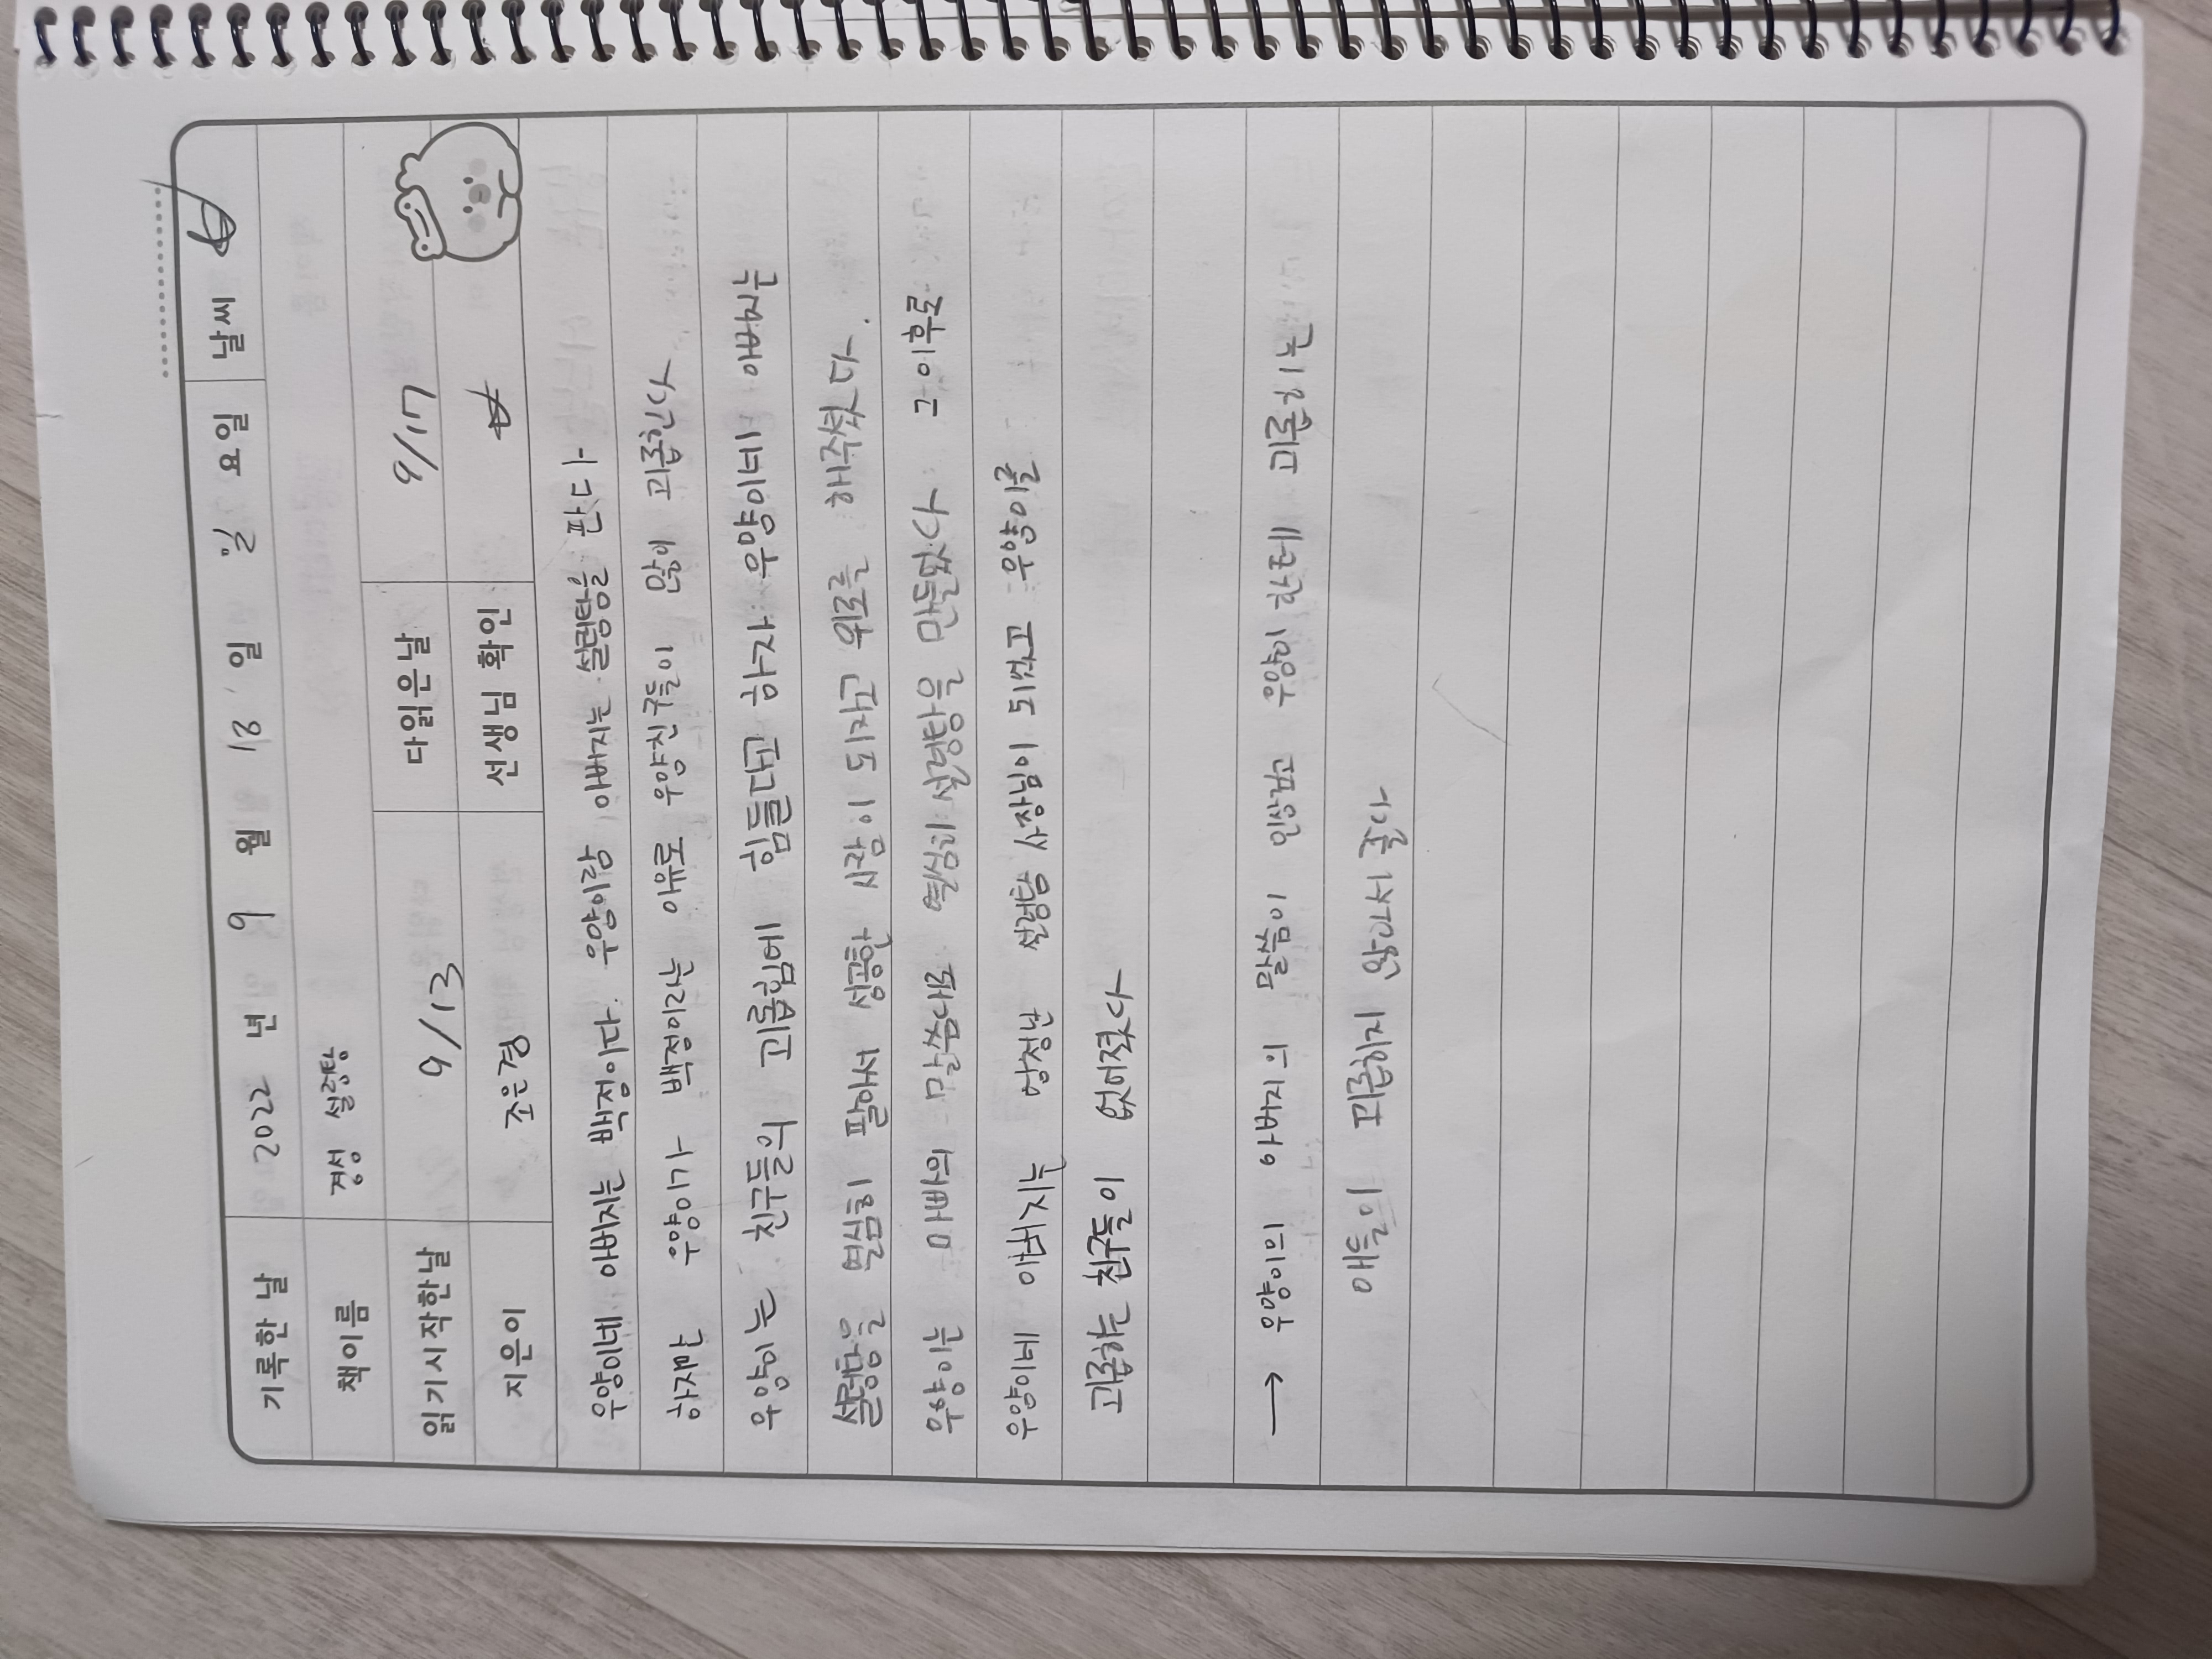 기록한 날 2022 년 9 월 18 일 일 요일 날씨
책이름 경성 설렁탕
읽기시작한날 9/13 다읽은날 9/17
지은이 조은경 선생님 확인
우양이네 아버지는 백정이다. 우양이랑 아버지는 설렁탕을 판다
하지만 우양이가 백정이라는 이유로 우양친구들이 많이 괴롭힌다
우양이는 친구들의 괴롭힘에 힘들다고 하자 우양이네 아버지는
설렁탕을 열심히 팔아서 성공한 사람이 되자고 위로를 해주셨다.
우양이는 아빠의 말씀대로 열심히 설렁탕을 만들었다 그 이후로
우양이네 아버지는 설렁탕 사장님이 되었고 우양이를
괴롭하는 친구들이 없어졌다
→ 우양이의 아버지의 말씀이 인상깊고 우양이한테 괴롭히는
애들이 괴롭히지 않아서 좋다